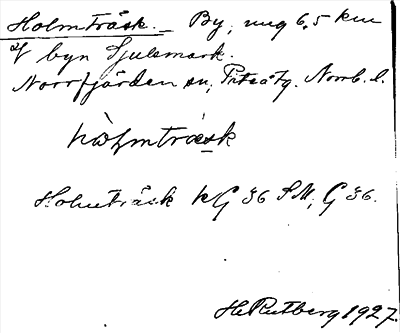 Holmträsk. – By, ung 6,5 km
V byn Sjulsmark.
Norrfjärden sn, Piteå tg. Norrb. l.
hòḷmträsk
Holmträsk KG 36 SM, G 36.
H Rutberg 1927.